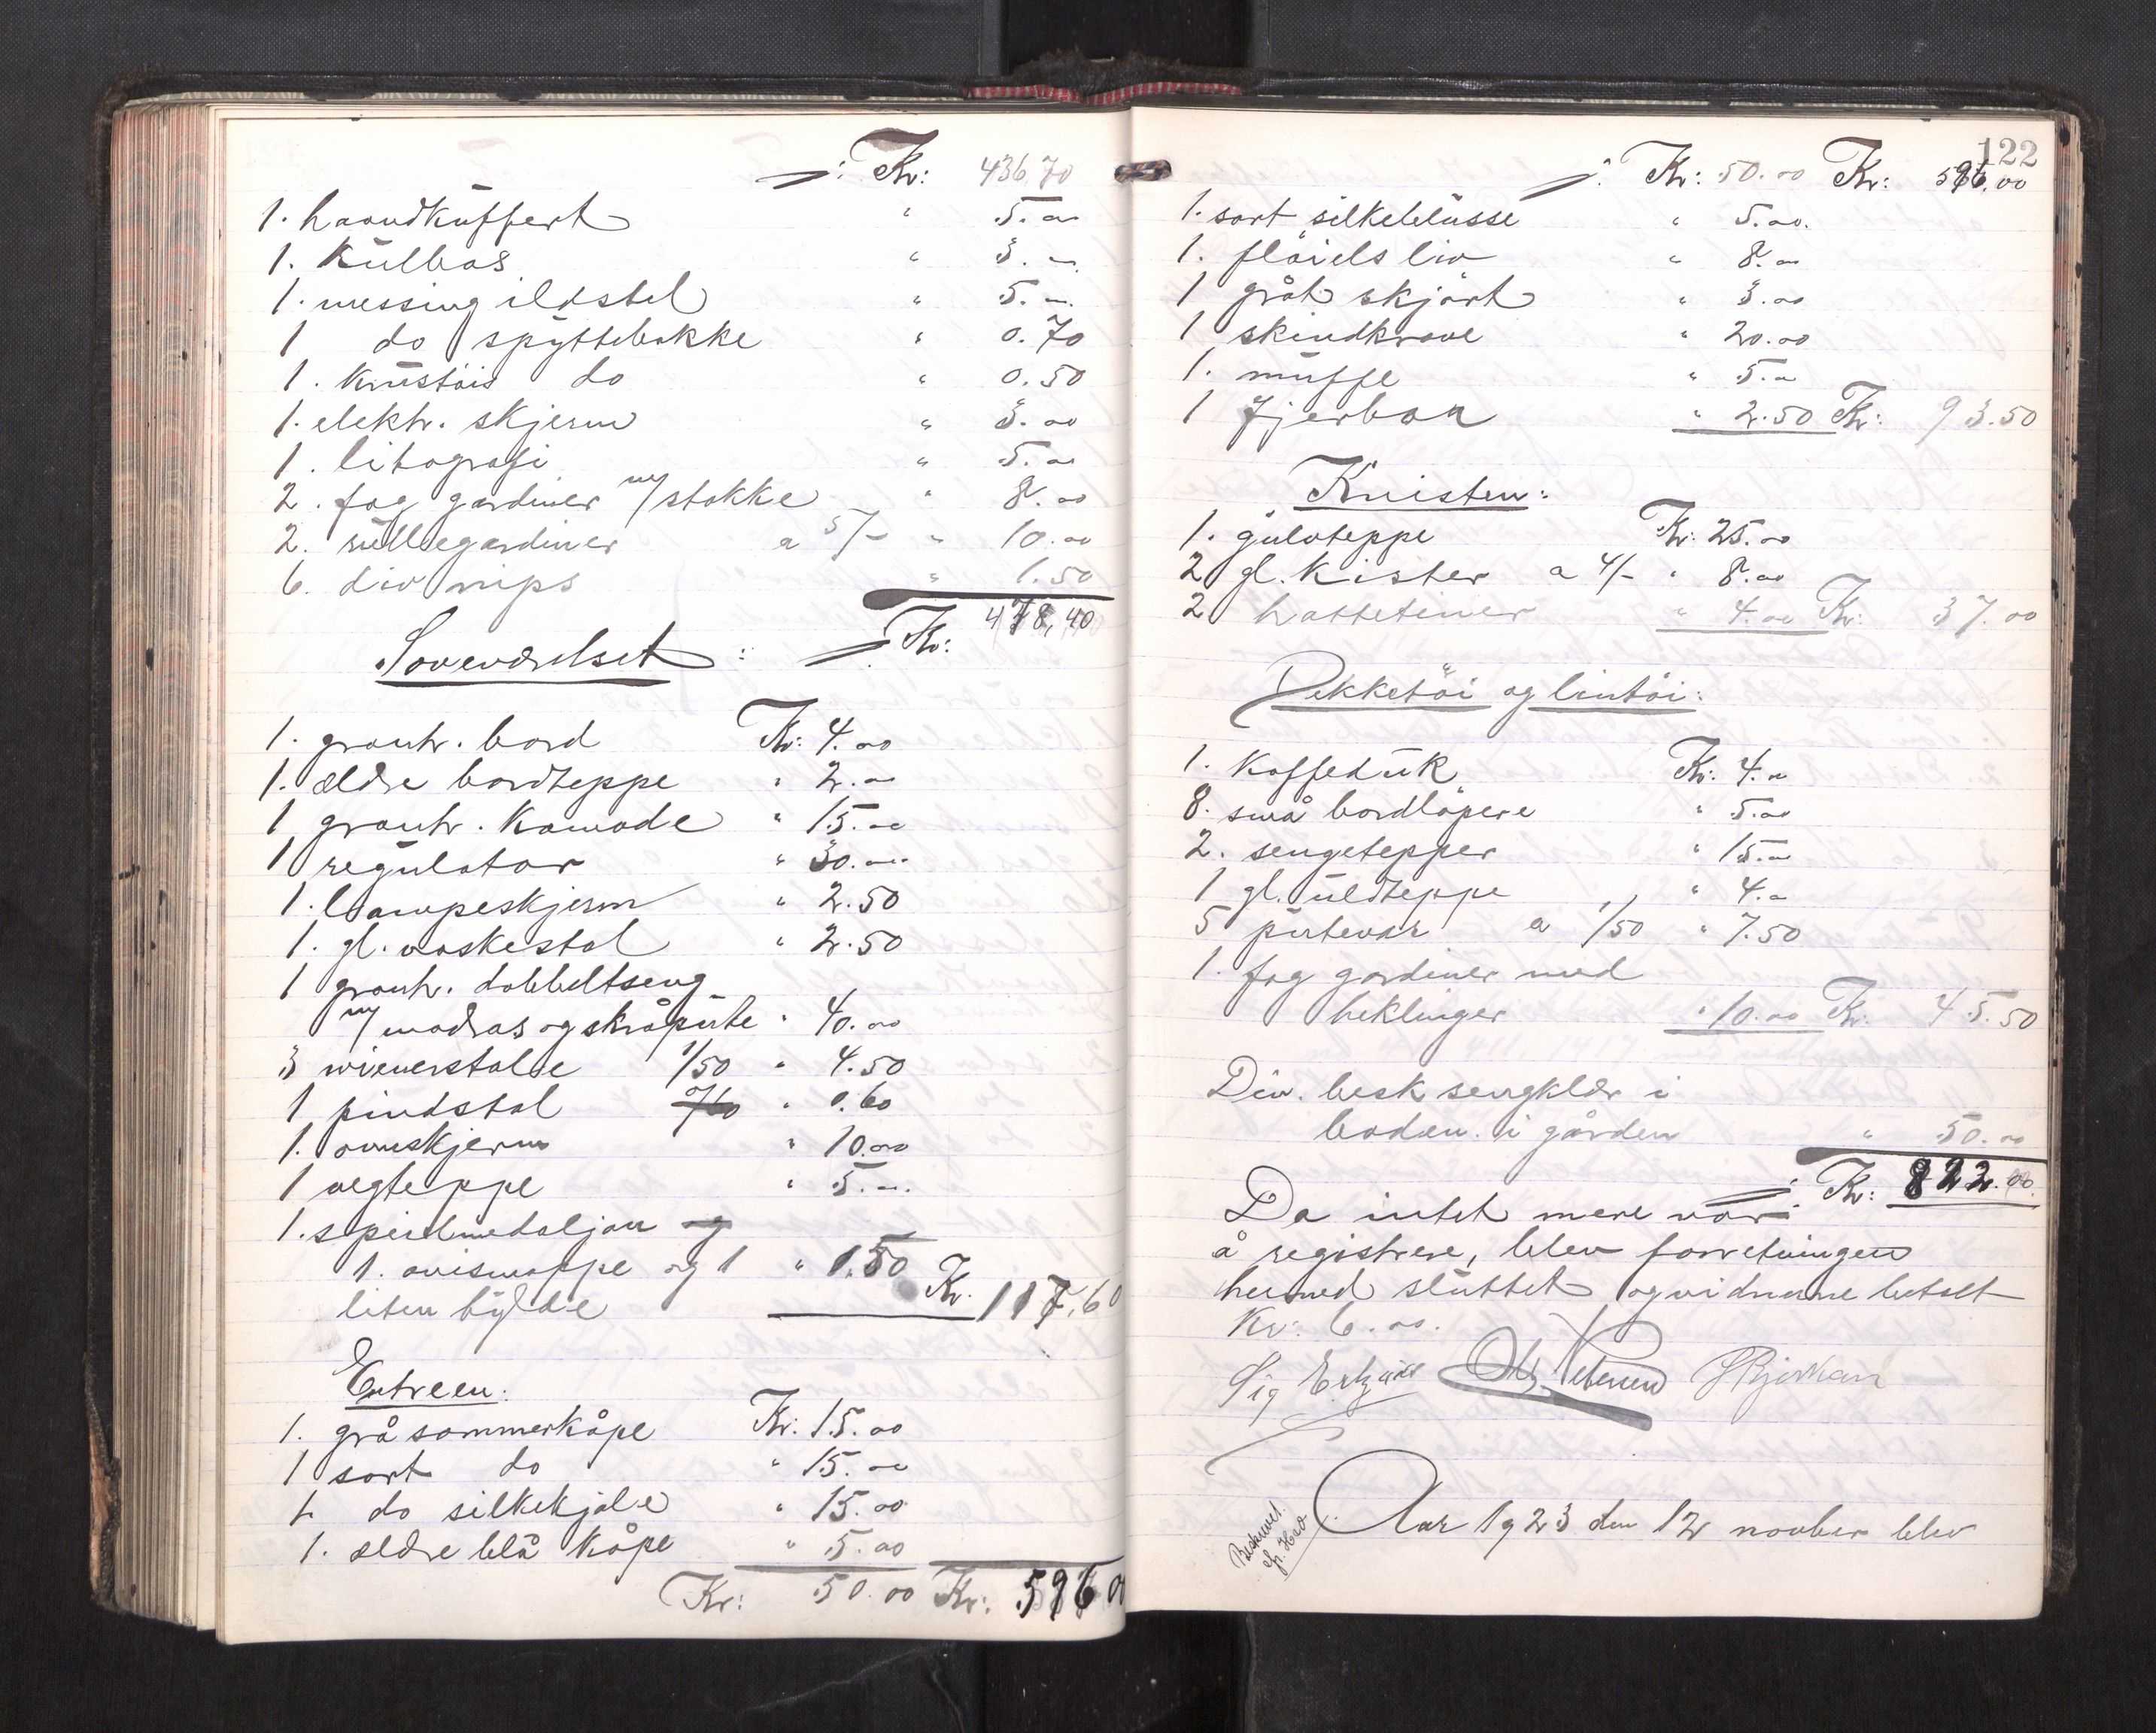 : Kr: 436,70
1. haandkuffert " 5.00
1. Kulbas " 3.00
1. messing ildstel " 5.00
1 do spyttebakke " 0.70
1. Krustöis do " 0.50
1. elektr. skjerm " 3.00
1. litografi " 5.00
2. fag gardiner m/stokke " 8.00
2. rullegardiner a 5/- " 10.00
6. div nips " 1.50
: Kr: 478,40
Soveværelset:
1. grontr. bord Kr: 4.00
1. ældre bordteppe " 2.00
1 grontr. Komode " 15.00
1 regulator " 30.00
1. lampeskjerm " 2.50
1. gl. vaskestol " 2.50
1 grontr. dobbeltseng
m/ madras og skråpute " 40.00
3 wienerstole 1/50 " 4.50
1 pindstol 0/60 " 0.60
1. ovnskjerm " 10.00
1 vegteppe " 5.00
1. speilmedaljon og
1. avismappe og 1 " 1.50
liten hylde Kr. 117,60
Entreen:
1. grå sommerkåpe Kr: 15.00
1 sort do " 15.00
1. do silkekjole " 15.00
1. ældre blå Kåpe " 5.00
Kr: 50.00 Kr: 596 00
122
: Kr: 50.00 Kr: 596,00
1. sort silkebluse " 5.00.
1. flöiels liv " 8.00
1 gråt skjört " 3.00
1 skindkrave " 20.00
1. muffe " 5.00
1 fjerboa " 2.50 Kr: 93.50
Knisten:
1. gulvteppe Kr: 25.00
2 gl. Kister a 4/- " 8.00
2 hatteteiner " 4.00 Kr: 37.00
Dekketöi og lintöi:
1. Kaffeduk Kr: 4.00
8. små bordlöpere " 5.00
2. sengetepper " 15.00
1 gl. uldteppe " 4.00
5 putevar a 1/50 " 7.50
1. fag gardiner med
heklinger " 10.00 Kr: 45.50
Div. besk sengklær i
boden i gården " 50.00
: Kr: 822.00.
Da intet mere var
å registrere, blev forretningen
hermed sluttet og vidnene betalt
Kr: 6.00.
Sig
Petersen
Beskrevet.
Aar 1923 den 12 novber blev